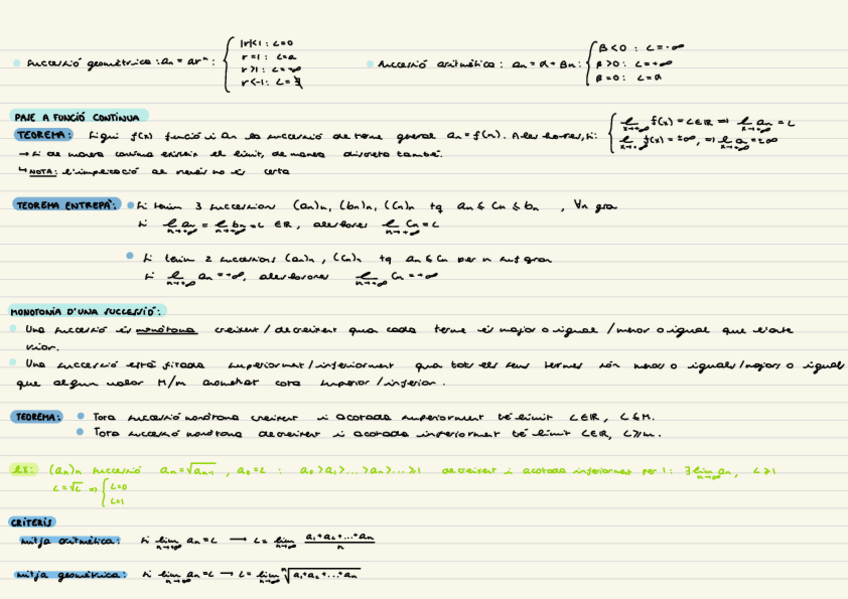 • Successió geomètrica: an = arⁿ: { |r|<1: L=0
r=1: L=a
r>1: L=+∞
r<-1: L=∄
• Successió aritmètica: an = α + βn: { β<0: L=-∞
β>0: L=+∞
β=0: L=α
PASE A FUNCIÓ CONTÍNUA
TEOREMA: Sigui f(x) funció i an la successió de terme general an = f(n). Aleshores, si: { lim x→+∞ f(x) = L∈ℝ ⇒ lim n→+∞ an = L
lim x→+∞ f(x) = ±∞, ⇒ lim n→+∞ an = ±∞
→ Si de manera contínua existeix el límit, de manera discreta també.
↳ NOTA: l'implicació al revés no és certa
TEOREMA ENTREPÀ: • Si tenim 3 successions (an)n, (bn)n, (cn)n tq an ≤ cn ≤ bn , ∀n gran
Si lim n→+∞ an = lim n→+∞ bn = L ∈ℝ, aleshores lim n→+∞ cn = L
• Si tenim 2 successions (an)n, (cn)n tq an ≤ cn per n suf gran
Si lim n→+∞ an = +∞, aleshores lim n→+∞ cn = +∞
MONOTONIA D'UNA SUCCESSIÓ:
• Una successió és monòtona creixent / decreixent quan cada terme és major o igual / menor o igual que l'ante
rior.
• Una successió està fitada superiorment / inferiorment quan tots els seus termes són menors o iguales / majors o igual
que algun valor M/m anomenat cota superior / inferior.
TEOREMA: • Tota successió monòtona creixent i acotada superiorment té límit L∈ℝ, L≤M.
• Tota successió monòtona decreixent i acotada inferiorment té límit L∈ℝ, L≥m.
EX: (an)n successió an = √an-1 , : a₀ > a₁ > ... > an > ... > 1 decreixent i acotada inferiorment per 1: ∃ lim n→+∞ an, L ≥ 1
L = √L ⇒ { L=0
L=1
CRITERIS
Mitja aritmètica: Si lim n→+∞ an = L → L = lim n→+∞ (a₁+a₂+...+an)/n
Mitja geomètrica: Si lim n→+∞ an = L → L = lim n→+∞ ⁿ√a₁+a₂+...+an